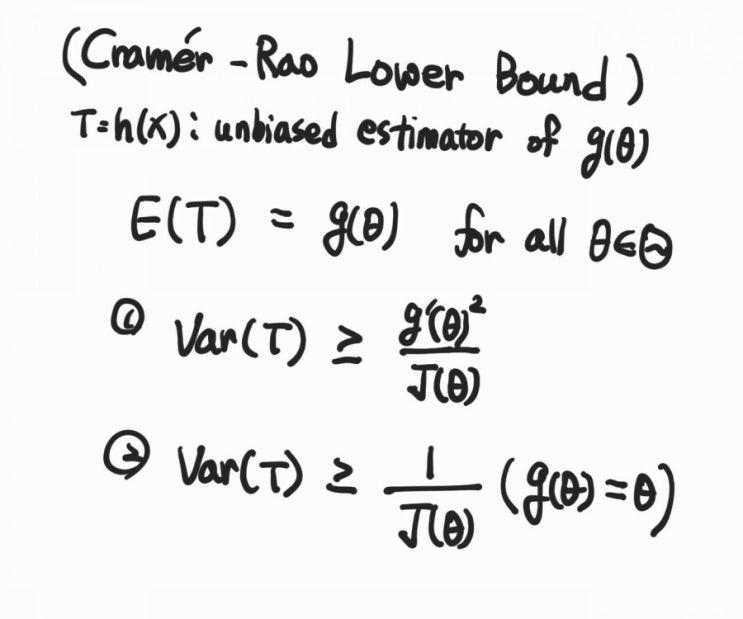 (Cramér-Rao Lower Bound)
T=h(X): unbiased estimator of g(θ)
E(T) = g(θ) for all θ∈Θ
① Var(T) ≥ g'(θ)² / J(θ)
② Var(T) ≥ 1 / J(θ) (g(θ)=θ)